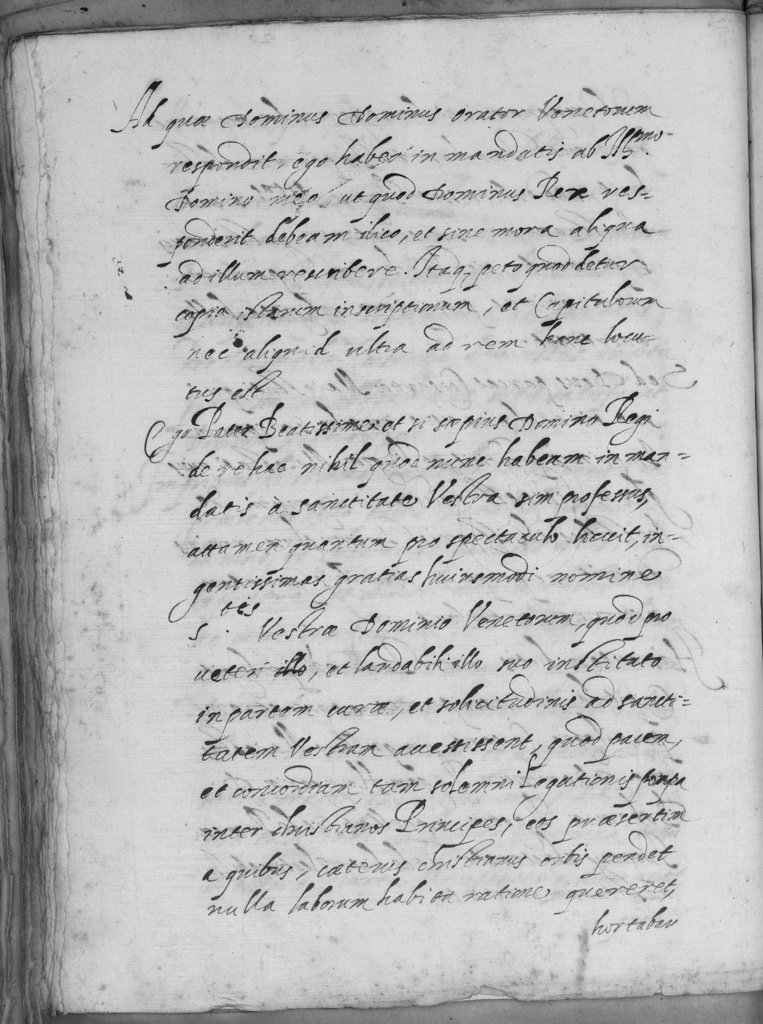 Ad quæ Dominus Dominus orator Venetorum
respondit, ego habeo in mandatis ab Ill.mo
Domino meo ut quod Dominus Rex res-
ponderit debeam ilico, et sine mora aliqua
ad illum rescribere. Itaq. peto quod detur
copia istarum inscriptionum, et Capitulorum
nec aliquid ultra ad rem hanc locu-
tus est
Ego Pater Beatissime et si sæpius Domino Regi
de re hac nihil quod nunc habeam in man=
datis a sanctitate Vestra sim professus,
attamen quantum pro spectaculo licuit, in-
gentissimas gratias huiusmodi nomine
S.tis Vestræ Dominio Venetorum, quod pro
veteri illo, et laudabili illo suo instituto
in partem curæ, et solicitudinis ad sancti=
tatem Vestram avexissent, quod pacem,
et concordiam, tam solemni Legationis pompa
inter christianos Principes, eos præsertim
a quibus, cæteris christianus orbis pendet
nulla laborum habita ratione quereret,
hortabar